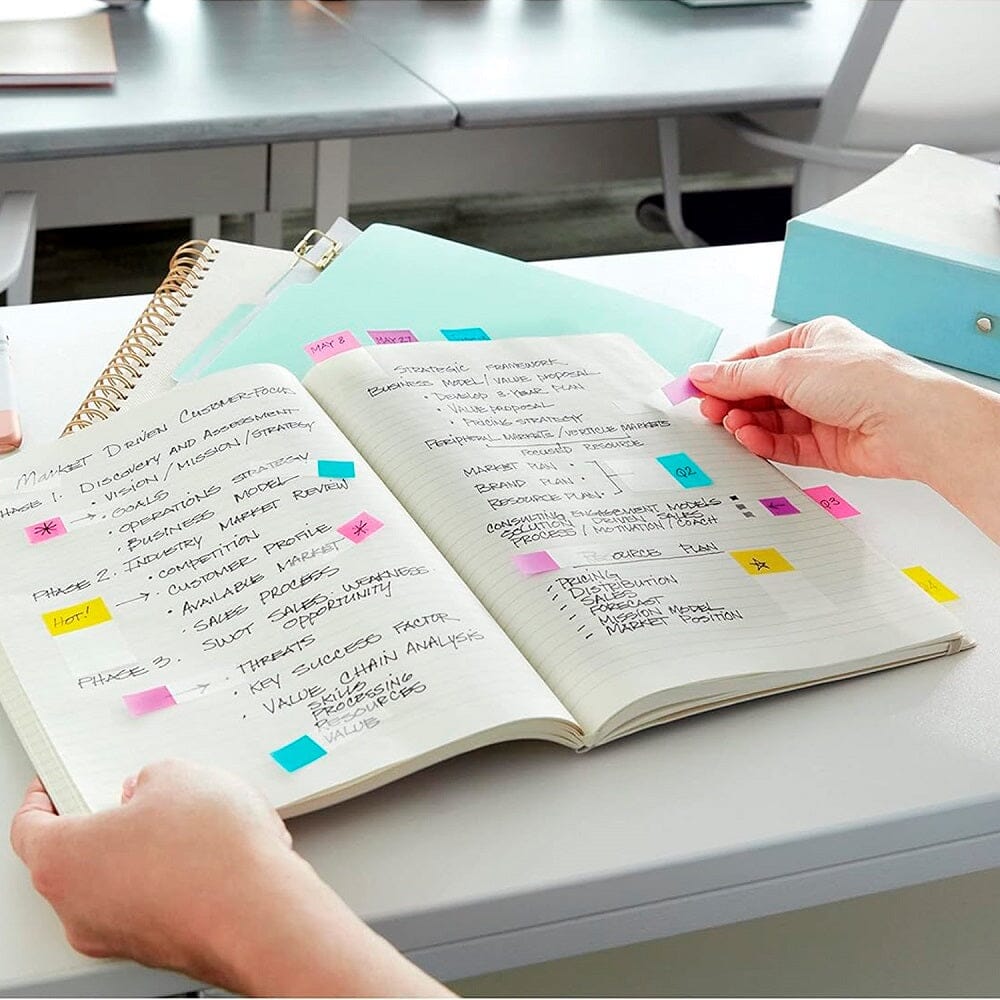 MARKET DRIVEN CUSTOMER-FOCUS
PHASE 1. DISCOVERY AND ASSESSMENT
• VISION/MISSION/STRATEGY
GOALS
• OPERATIONS STRATEGY
• BUSINESS MODEL
INDUSTRY MARKET REVIEW
PHASE 2.
• COMPETITION
CUSTOMER PROFILE
HOT!
• AVAILABLE MARKET
• SALES PROCESS
SWOT SALES. WEAKNESS
OPPORTUNITY
PHASE 3.
• THREATS
• KEY SUCCESS FACTOR
• VALUE CHAIN ANALYSIS
SKILLS
PROCESSING
RESOURCES
VALUE
MAY 8
MAY 27
STRATEGIC FRAMEWORK
BUSINESS MODEL/VALUE PROPOSAL
• DEVELOP 3-YEAR PLAN
• VALUE PROPOSAL
• PRICING STRATEGY
PERIPHERAL MARKETS/VERTICLE MARKETS
FOCUSED RESOURCE
MARKET PLAN •
BRAND PLAN •
RESOURCE PLAN •
Q2
CONSULTING ENGAGEMENT MODELS
SOLUTION DRIVEN SALES
PROCESS/MOTIVATION/COACH
Q3
RESOURCE PLAN
PRICING
DISTRIBUTION
SALES
FORECAST
MISSION MODEL
MARKET POSITION
Q4